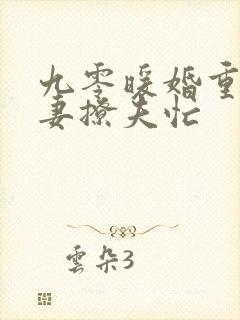 九零暖婚重
妻撩夫忙
雲朵3